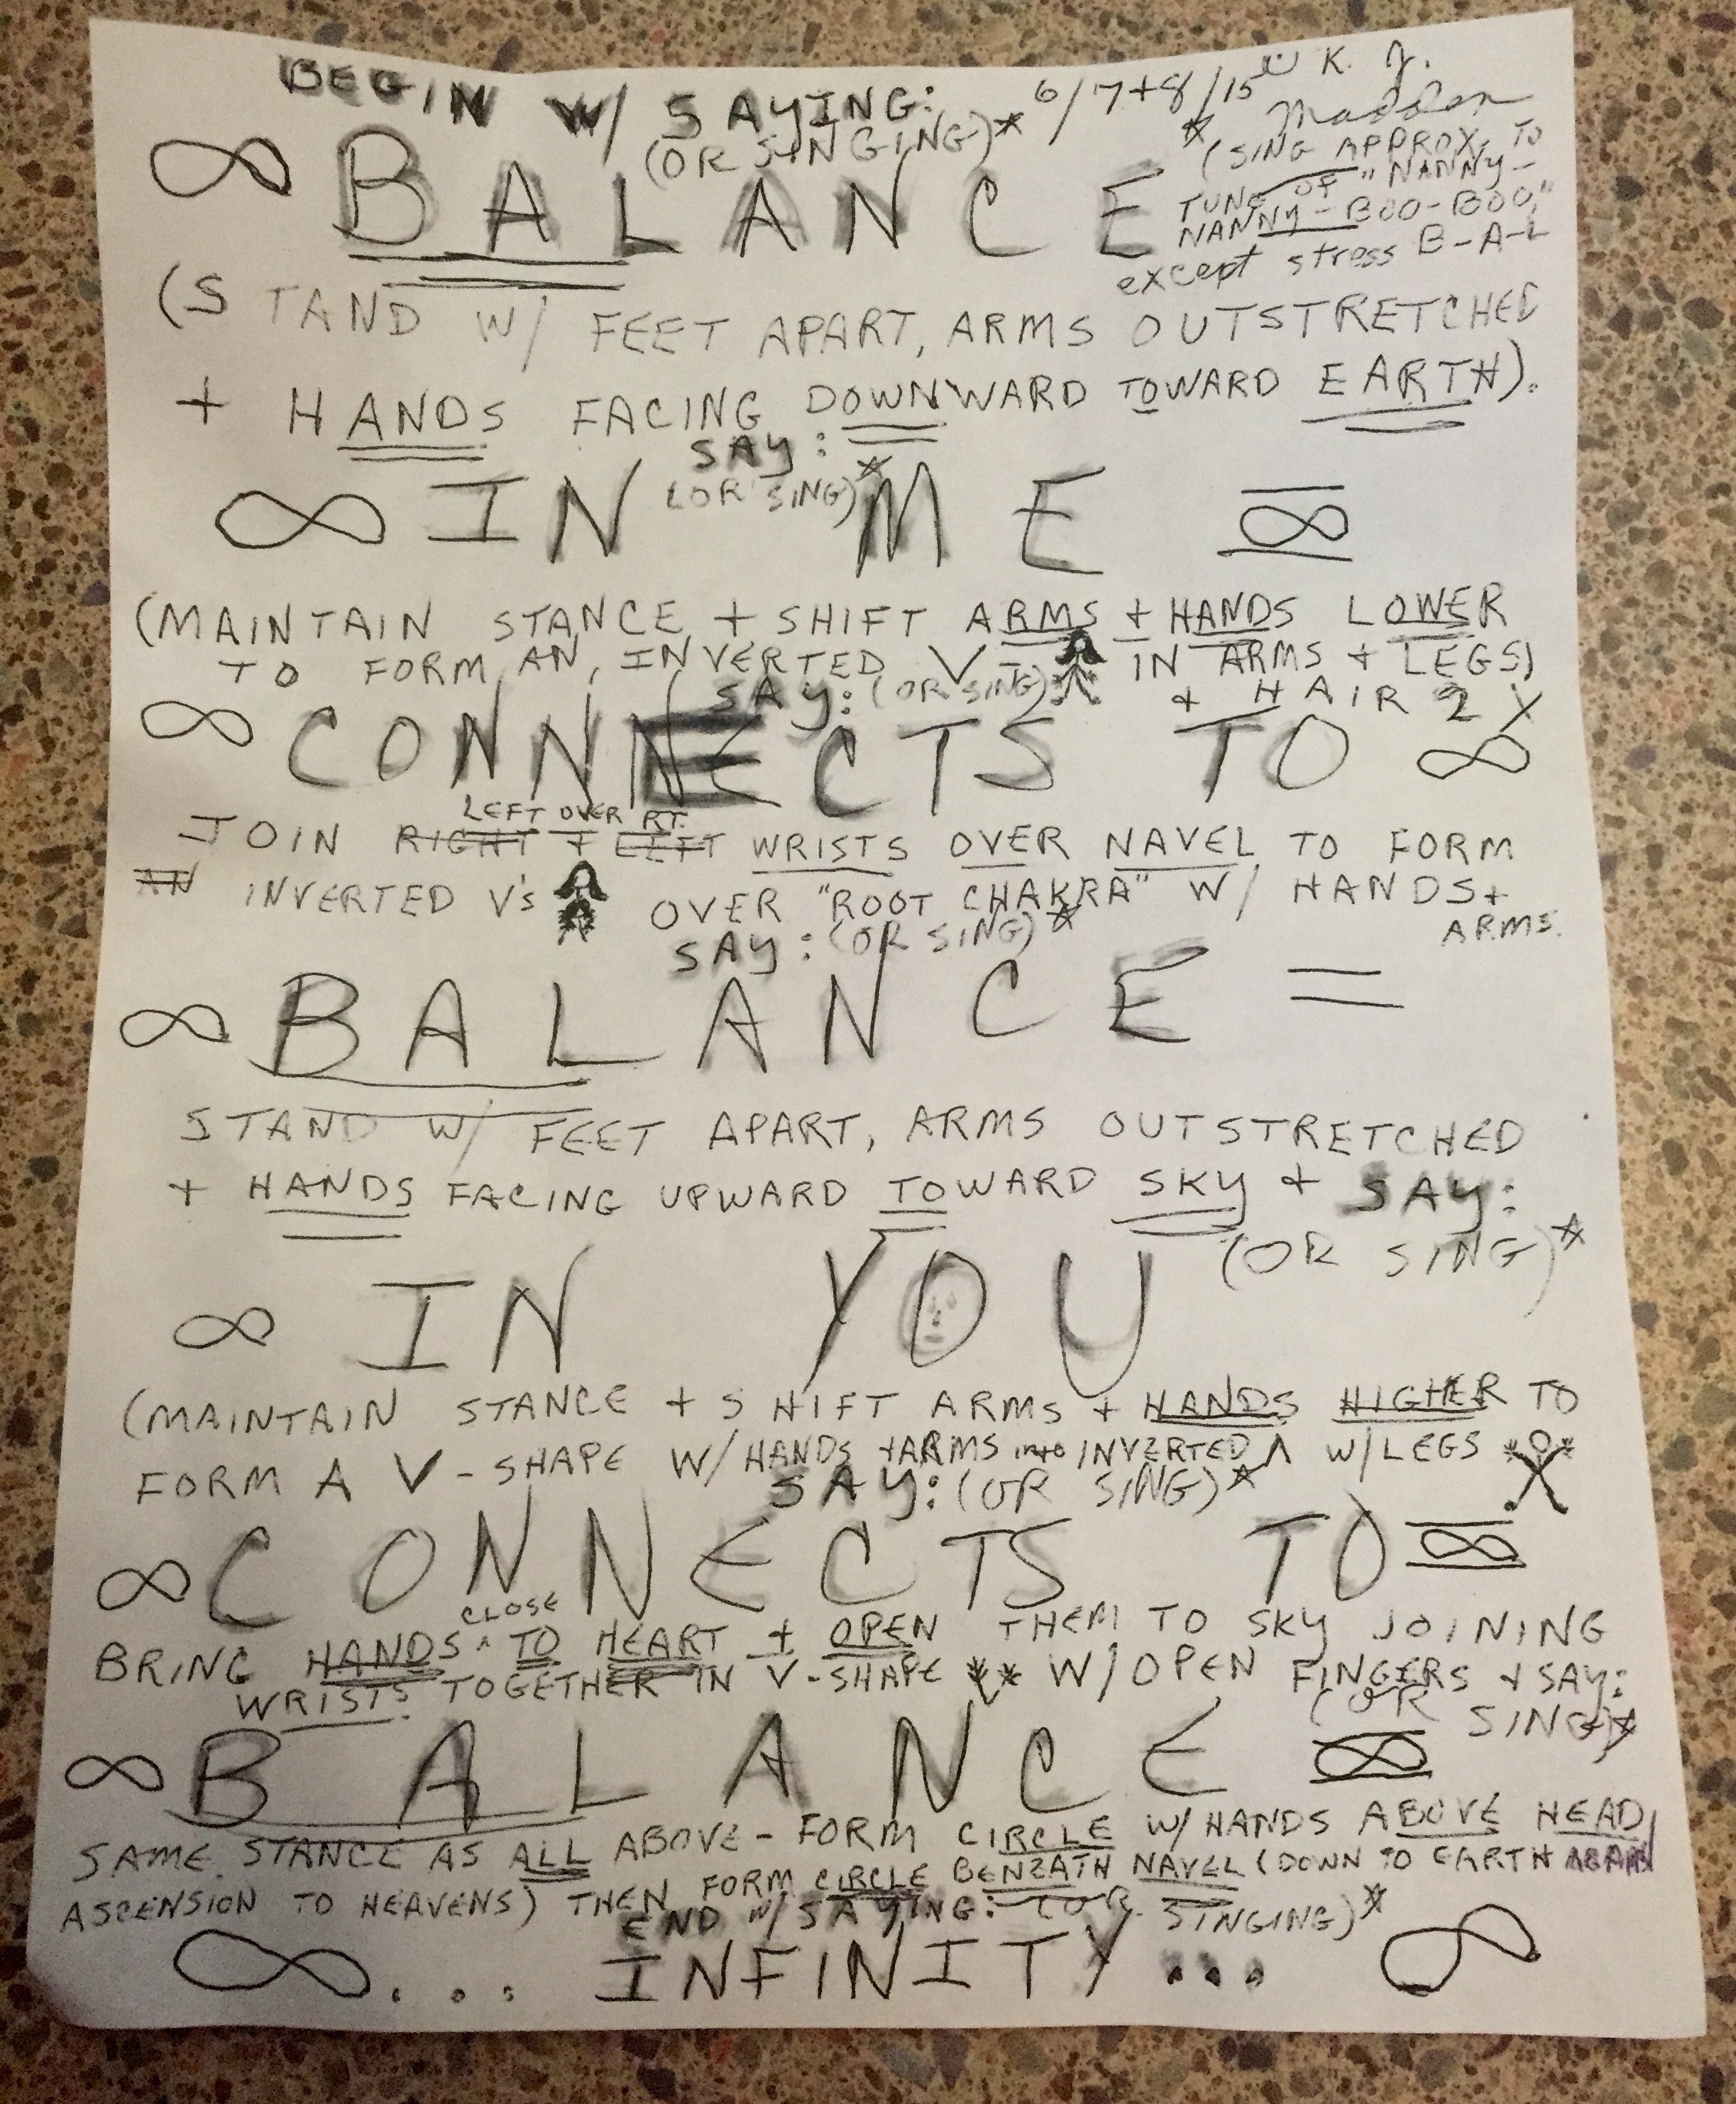 BEGIN W/ SAYING: 6/7+8/15 K. J.
(OR SINGING)* Madden
∞ BALANCE
* (SING APPROX. TO
TUNE OF "NANNY-
NANNY-BOO-BOO,"
except stress B-A-L
(STAND W/ FEET APART, ARMS OUTSTRETCHED
+ HANDS FACING DOWNWARD TOWARD EARTH).
SAY:
(OR SING)*
∞ IN ME ∞
(MAINTAIN STANCE + SHIFT ARMS + HANDS LOWER
TO FORM AN INVERTED V IN ARMS + LEGS)
SAY: (OR SING) + HAIR 2X
∞ CONNECTS TO ∞
LEFT OVER RT.
JOIN RIGHT + LEFT WRISTS OVER NAVEL TO FORM
AN INVERTED V's OVER "ROOT CHAKRA" W/ HANDS +
ARMS.
SAY: (OR SING)*
∞ BALANCE =
STAND W/ FEET APART, ARMS OUTSTRETCHED
+ HANDS FACING UPWARD TOWARD SKY + SAY:
(OR SING)*
∞ IN YOU
(MAINTAIN STANCE + SHIFT ARMS + HANDS HIGHER TO
FORM A V-SHAPE W/ HANDS + ARMS into INVERTED Λ W/ LEGS
SAY: (OR SING)*
∞ CONNECTS TO ∞
CLOSE
BRING HANDS ^ TO HEART + OPEN THEM TO SKY JOINING
WRISTS TOGETHER IN V-SHAPE W/ OPEN FINGERS + SAY:
(OR SING)*
∞ BALANCE ∞
SAME STANCE AS ALL ABOVE - FORM CIRCLE W/ HANDS ABOVE HEAD,
THEN FORM CIRCLE BENEATH NAVEL (DOWN TO EARTH AGAIN
ASCENSION TO HEAVENS)
END W/ SAYING: (OR SINGING)*
∞... INFINITY... ∞